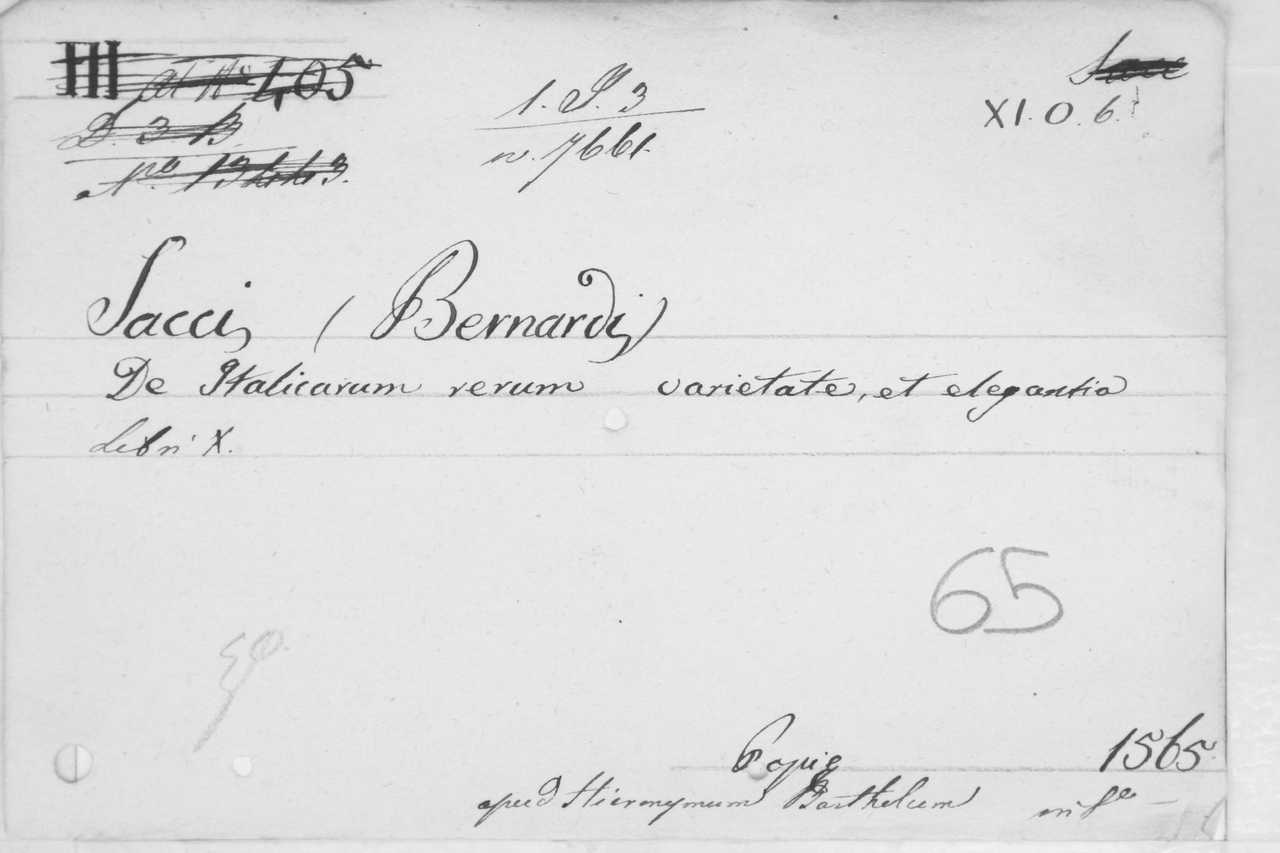 III at N° 405
D. 3 B.
N° 13443.
1. P. 3
n. 7661.
XI. O. 6.
Sacci, (Bernardi)
De Italicarum rerum varietate, et elegantia
Libri X.
65
Papie 1565
apud Hieronymum Bartholum in f°